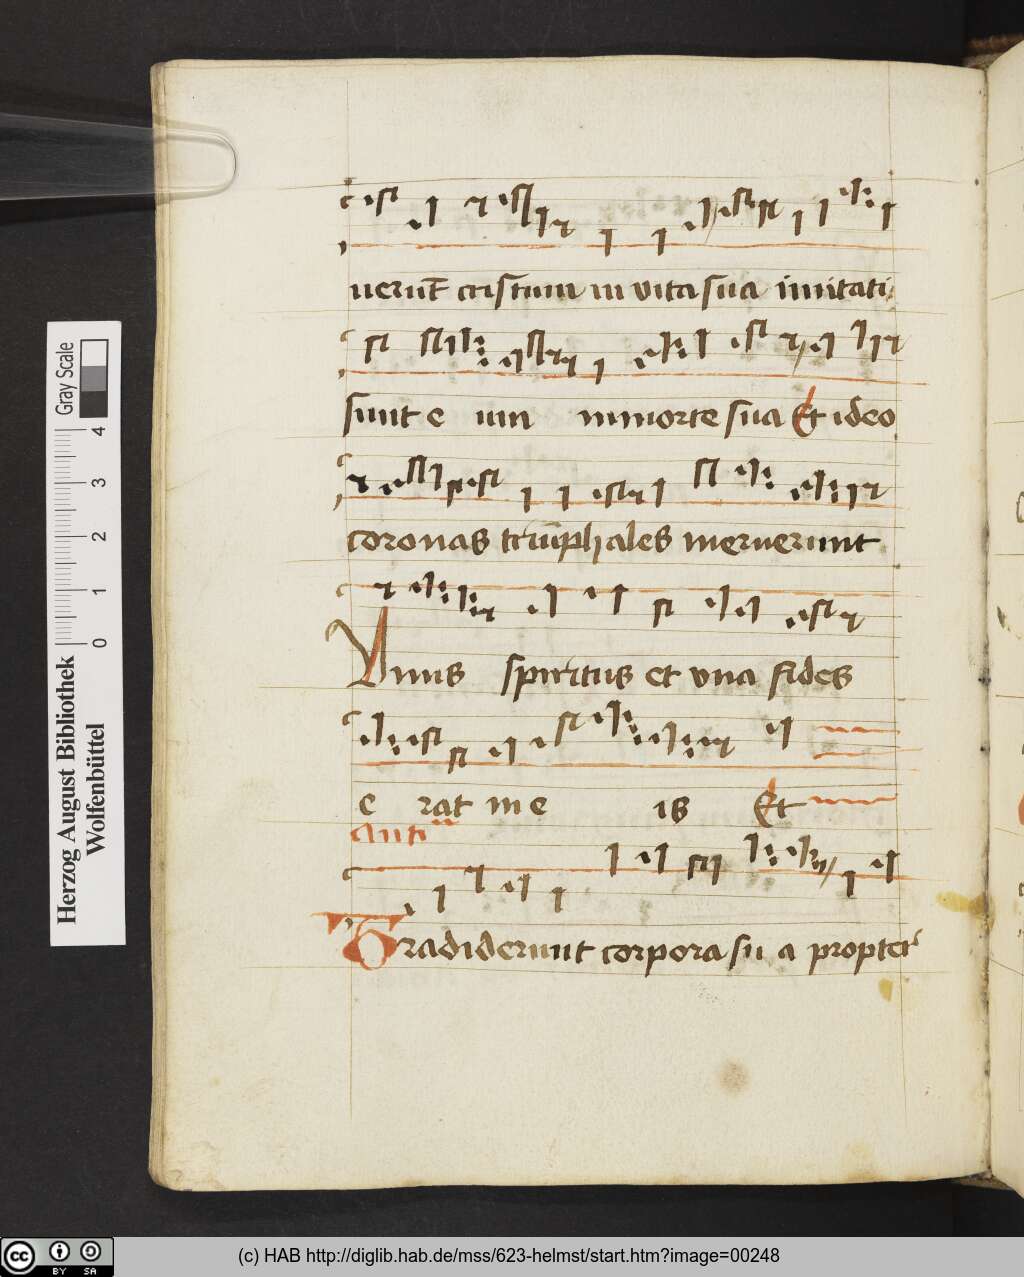 uerūt cristum in vita sua imitati
sunt e um in morte sua Et ideo
coronas triūphales meruerunt
Vnus spiritus et vna fides
e rat in e is Et
Anti
Tradiderunt corpora su a propter
Gray Scale
0 1 2 3 4
Herzog August Bibliothek
Wolfenbüttel
cc BY SA
(c) HAB http://diglib.hab.de/mss/623-helmst/start.htm?image=00248